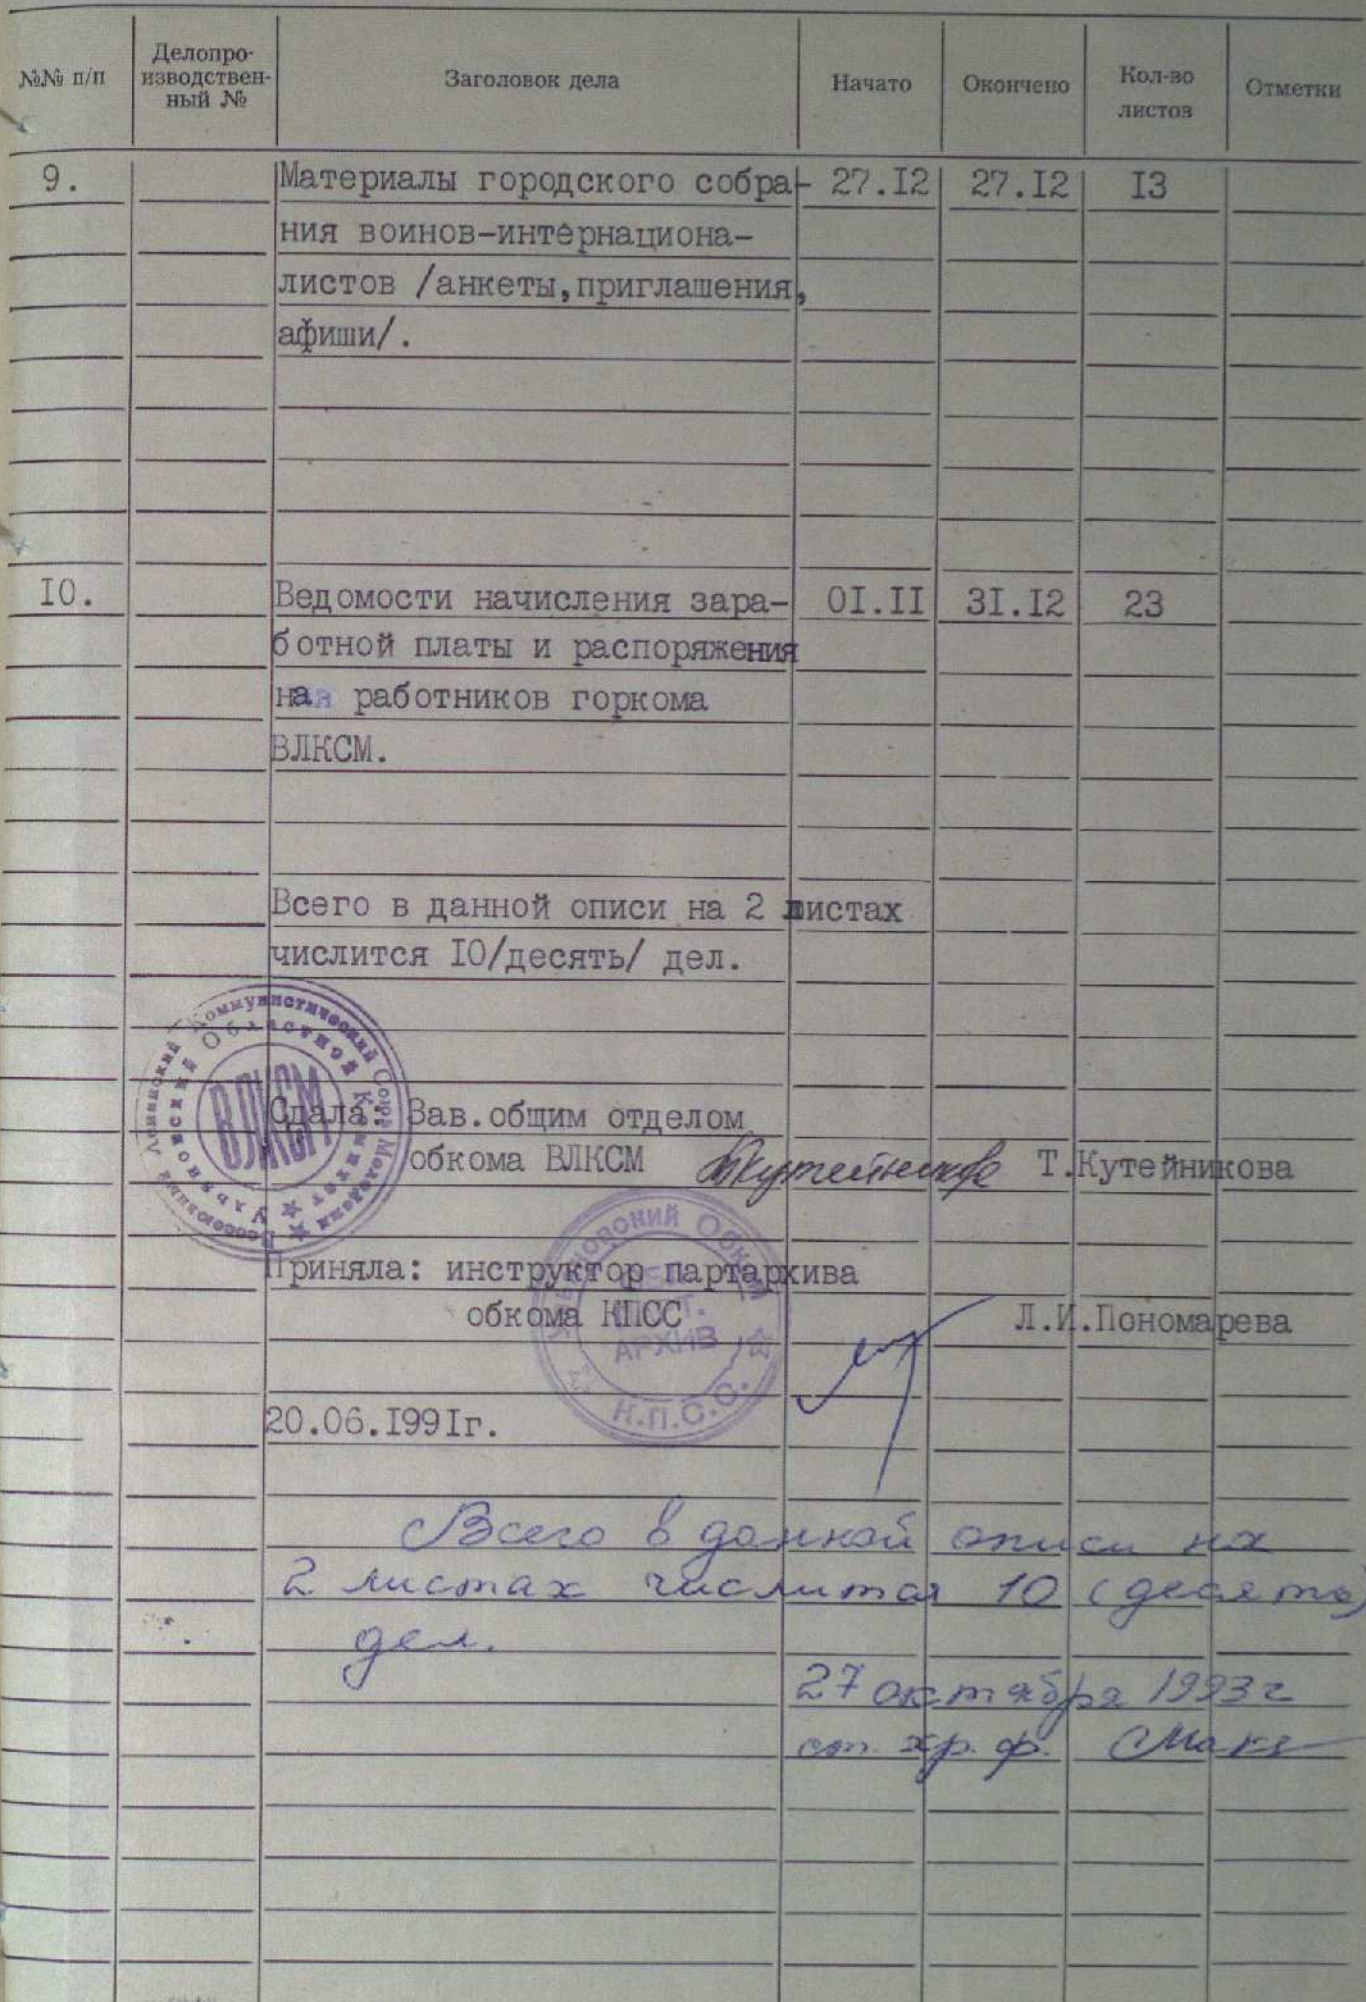 №№ п/п
Делопро-
изводствен-
ный №
Заголовок дела
Начато
Окончено
Кол-во
листов
Отметки
9. Материалы городского собра- 27.I2 27.I2 I3
ния воинов-интернациона-
листов /анкеты,приглашения,
афиши/.
I0. Ведомости начисления зара- 0I.II 3I.I2 23
ботной платы и распоряжения
на работников горкома
ВЛКСМ.
Всего в данной описи на 2 листах
числится I0/десять/ дел.
Всесоюзный Ленинский Коммунистический Союз Молодежи
Ульяновский Областной Комитет
ВЛКСМ
Сдала: Зав.общим отделом
обкома ВЛКСМ Т.Кутейникова
Приняла: инструктор партархива
обкома КПСС Л.И.Пономарева
Ульяновский Обком
АРХИВ
К.П.С.С.
20.06.I99Iг.
Всего в данной описи на
2 листах числится 10 (десять)
дел.
27 октября 1993 г
ст. хр. ф.